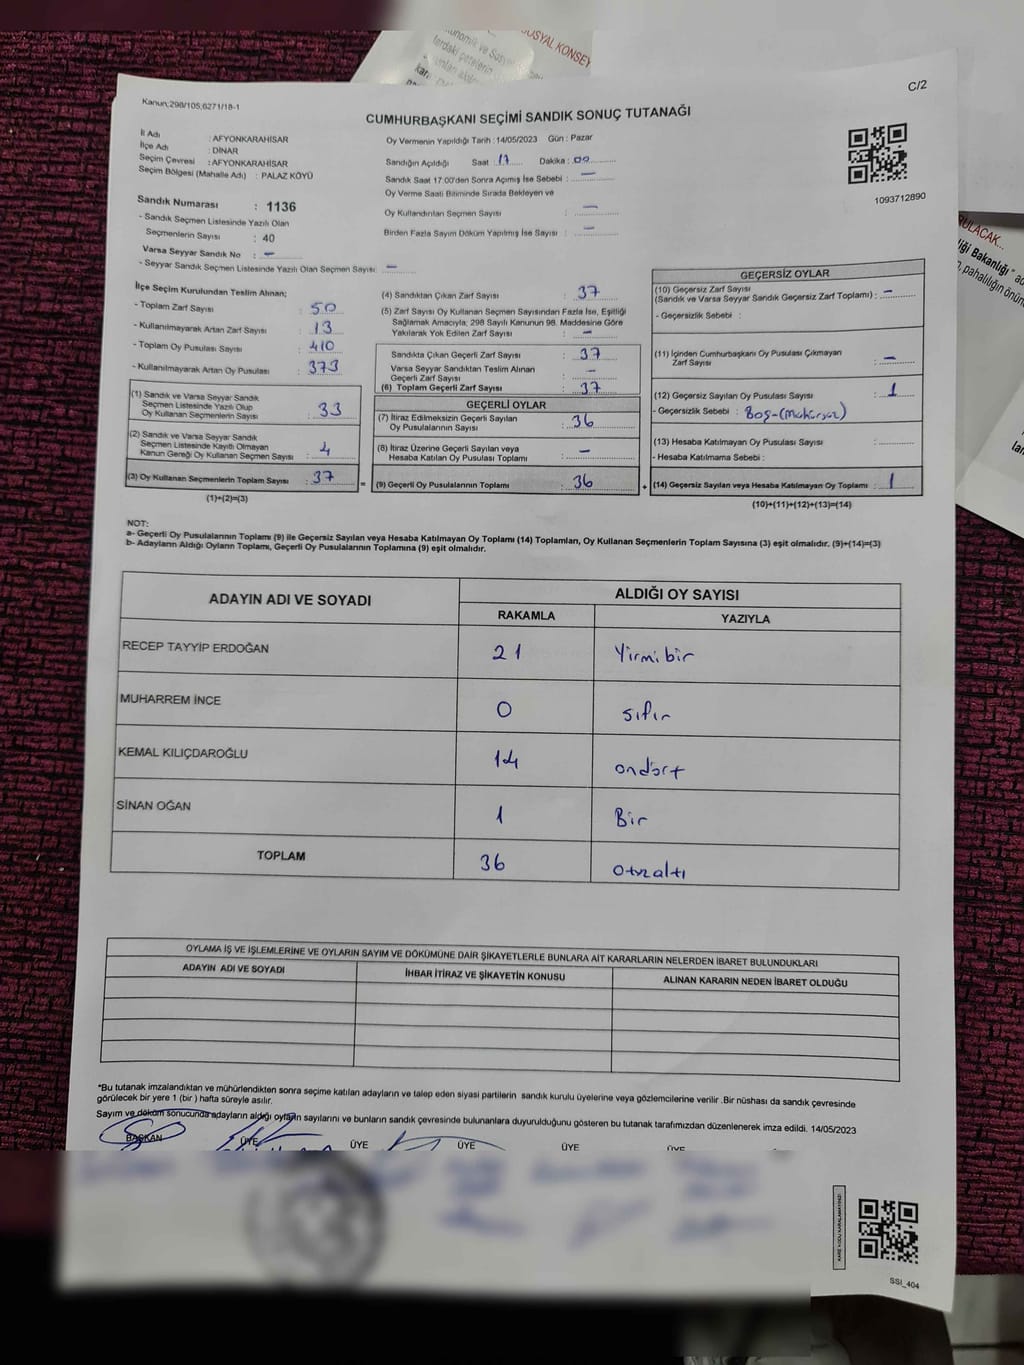 SOSYAL KONSEY
C/2
Kanun;298/105,6271/18-1
CUMHURBAŞKANI SEÇİMİ SANDIK SONUÇ TUTANAĞI
İl Adı : AFYONKARAHİSAR
İlçe Adı : DİNAR
Seçim Çevresi : AFYONKARAHİSAR
Seçim Bölgesi (Mahalle Adı) : PALAZ KÖYÜ
Oy Vermenin Yapıldığı Tarih :14/05/2023 Gün : Pazar
Sandığın Açıldığı Saat : 17 Dakika : 00
Sandık Saat 17:00'den Sonra Açılmış İse Sebebi : —
Oy Verme Saati Bitiminde Sırada Bekleyen ve
Oy Kullandırılan Seçmen Sayısı : —
Birden Fazla Sayım Döküm Yapılmış İse Sayısı : —
1093712890
Sandık Numarası : 1136
- Sandık Seçmen Listesinde Yazılı Olan
Seçmenlerin Sayısı : 40
Varsa Seyyar Sandık No : —
- Seyyar Sandık Seçmen Listesinde Yazılı Olan Seçmen Sayısı : —
İlçe Seçim Kurulundan Teslim Alınan;
- Toplam Zarf Sayısı : 50
- Kullanılmayarak Artan Zarf Sayısı : 13
- Toplam Oy Pusulası Sayısı : 410
- Kullanılmayarak Artan Oy Pusulası : 373
(1) Sandık ve Varsa Seyyar Sandık
Seçmen Listesinde Yazılı Olup
Oy Kullanan Seçmenlerin Sayısı : 33
(2) Sandık ve Varsa Seyyar Sandık
Seçmen Listesinde Kayıtlı Olmayan
Kanun Gereği Oy Kullanan Seçmen Sayısı : 4
(3) Oy Kullanan Seçmenlerin Toplam Sayısı : 37
(1)+(2)=(3)
(4) Sandıktan Çıkan Zarf Sayısı : 37
(5) Zarf Sayısı Oy Kullanan Seçmen Sayısından Fazla İse, Eşitliği
Sağlamak Amacıyla; 298 Sayılı Kanunun 98. Maddesine Göre
Yakılarak Yok Edilen Zarf Sayısı : —
Sandıkta Çıkan Geçerli Zarf Sayısı : 37
Varsa Seyyar Sandıktan Teslim Alınan
Geçerli Zarf Sayısı : —
(6) Toplam Geçerli Zarf Sayısı : 37
GEÇERLİ OYLAR
(7) İtiraz Edilmeksizin Geçerli Sayılan
Oy Pusulalarının Sayısı : 36
(8) İtiraz Üzerine Geçerli Sayılan veya
Hesaba Katılan Oy Pusulası Toplamı : —
= (9) Geçerli Oy Pusulalarının Toplamı : 36
GEÇERSİZ OYLAR
(10) Geçersiz Zarf Sayısı
(Sandık ve Varsa Seyyar Sandık Geçersiz Zarf Toplamı) : —
- Geçersizlik Sebebi :
(11) İçinden Cumhurbaşkanı Oy Pusulası Çıkmayan
Zarf Sayısı : —
(12) Geçersiz Sayılan Oy Pusulası Sayısı : 1
- Geçersizlik Sebebi : Boş-(Mühürsüz)
(13) Hesaba Katılmayan Oy Pusulası Sayısı :
- Hesaba Katılmama Sebebi :
+ (14) Geçersiz Sayılan veya Hesaba Katılmayan Oy Toplamı : 1
(10)+(11)+(12)+(13)=(14)
NOT:
a- Geçerli Oy Pusulalarının Toplamı (9) ile Geçersiz Sayılan veya Hesaba Katılmayan Oy Toplamı (14) Toplamları, Oy Kullanan Seçmenlerin Toplam Sayısına (3) eşit olmalıdır. (9)+(14)=(3)
b- Adayların Aldığı Oyların Toplamı, Geçerli Oy Pusulalarının Toplamına (9) eşit olmalıdır.
ADAYIN ADI VE SOYADI ALDIĞI OY SAYISI
RAKAMLA YAZIYLA
RECEP TAYYİP ERDOĞAN 21 Yirmibir
MUHARREM İNCE 0 sıfır
KEMAL KILIÇDAROĞLU 14 ondört
SİNAN OĞAN 1 Bir
TOPLAM 36 otuzaltı
OYLAMA İŞ VE İŞLEMLERİNE VE OYLARIN SAYIM VE DÖKÜMÜNE DAİR ŞİKAYETLERLE BUNLARA AİT KARARLARIN NELERDEN İBARET BULUNDUKLARI
ADAYIN ADI VE SOYADI İHBAR İTİRAZ VE ŞİKAYETİN KONUSU ALINAN KARARIN NEDEN İBARET OLDUĞU
*Bu tutanak imzalandıktan ve mühürlendikten sonra seçime katılan adayların ve talep eden siyasi partilerin sandık kurulu üyelerine veya gözlemcilerine verilir .Bir nüshası da sandık çevresinde
görülecek bir yere 1 (bir ) hafta süreyle asılır.
Sayım ve döküm sonucunda adayların aldığı oyların sayılarını ve bunların sandık çevresinde bulunanlara duyurulduğunu gösteren bu tutanak tarafımızdan düzenlenerek imza edildi. 14/05/2023
BAŞKAN ÜYE ÜYE ÜYE ÜYE ÜYE
SSI_404